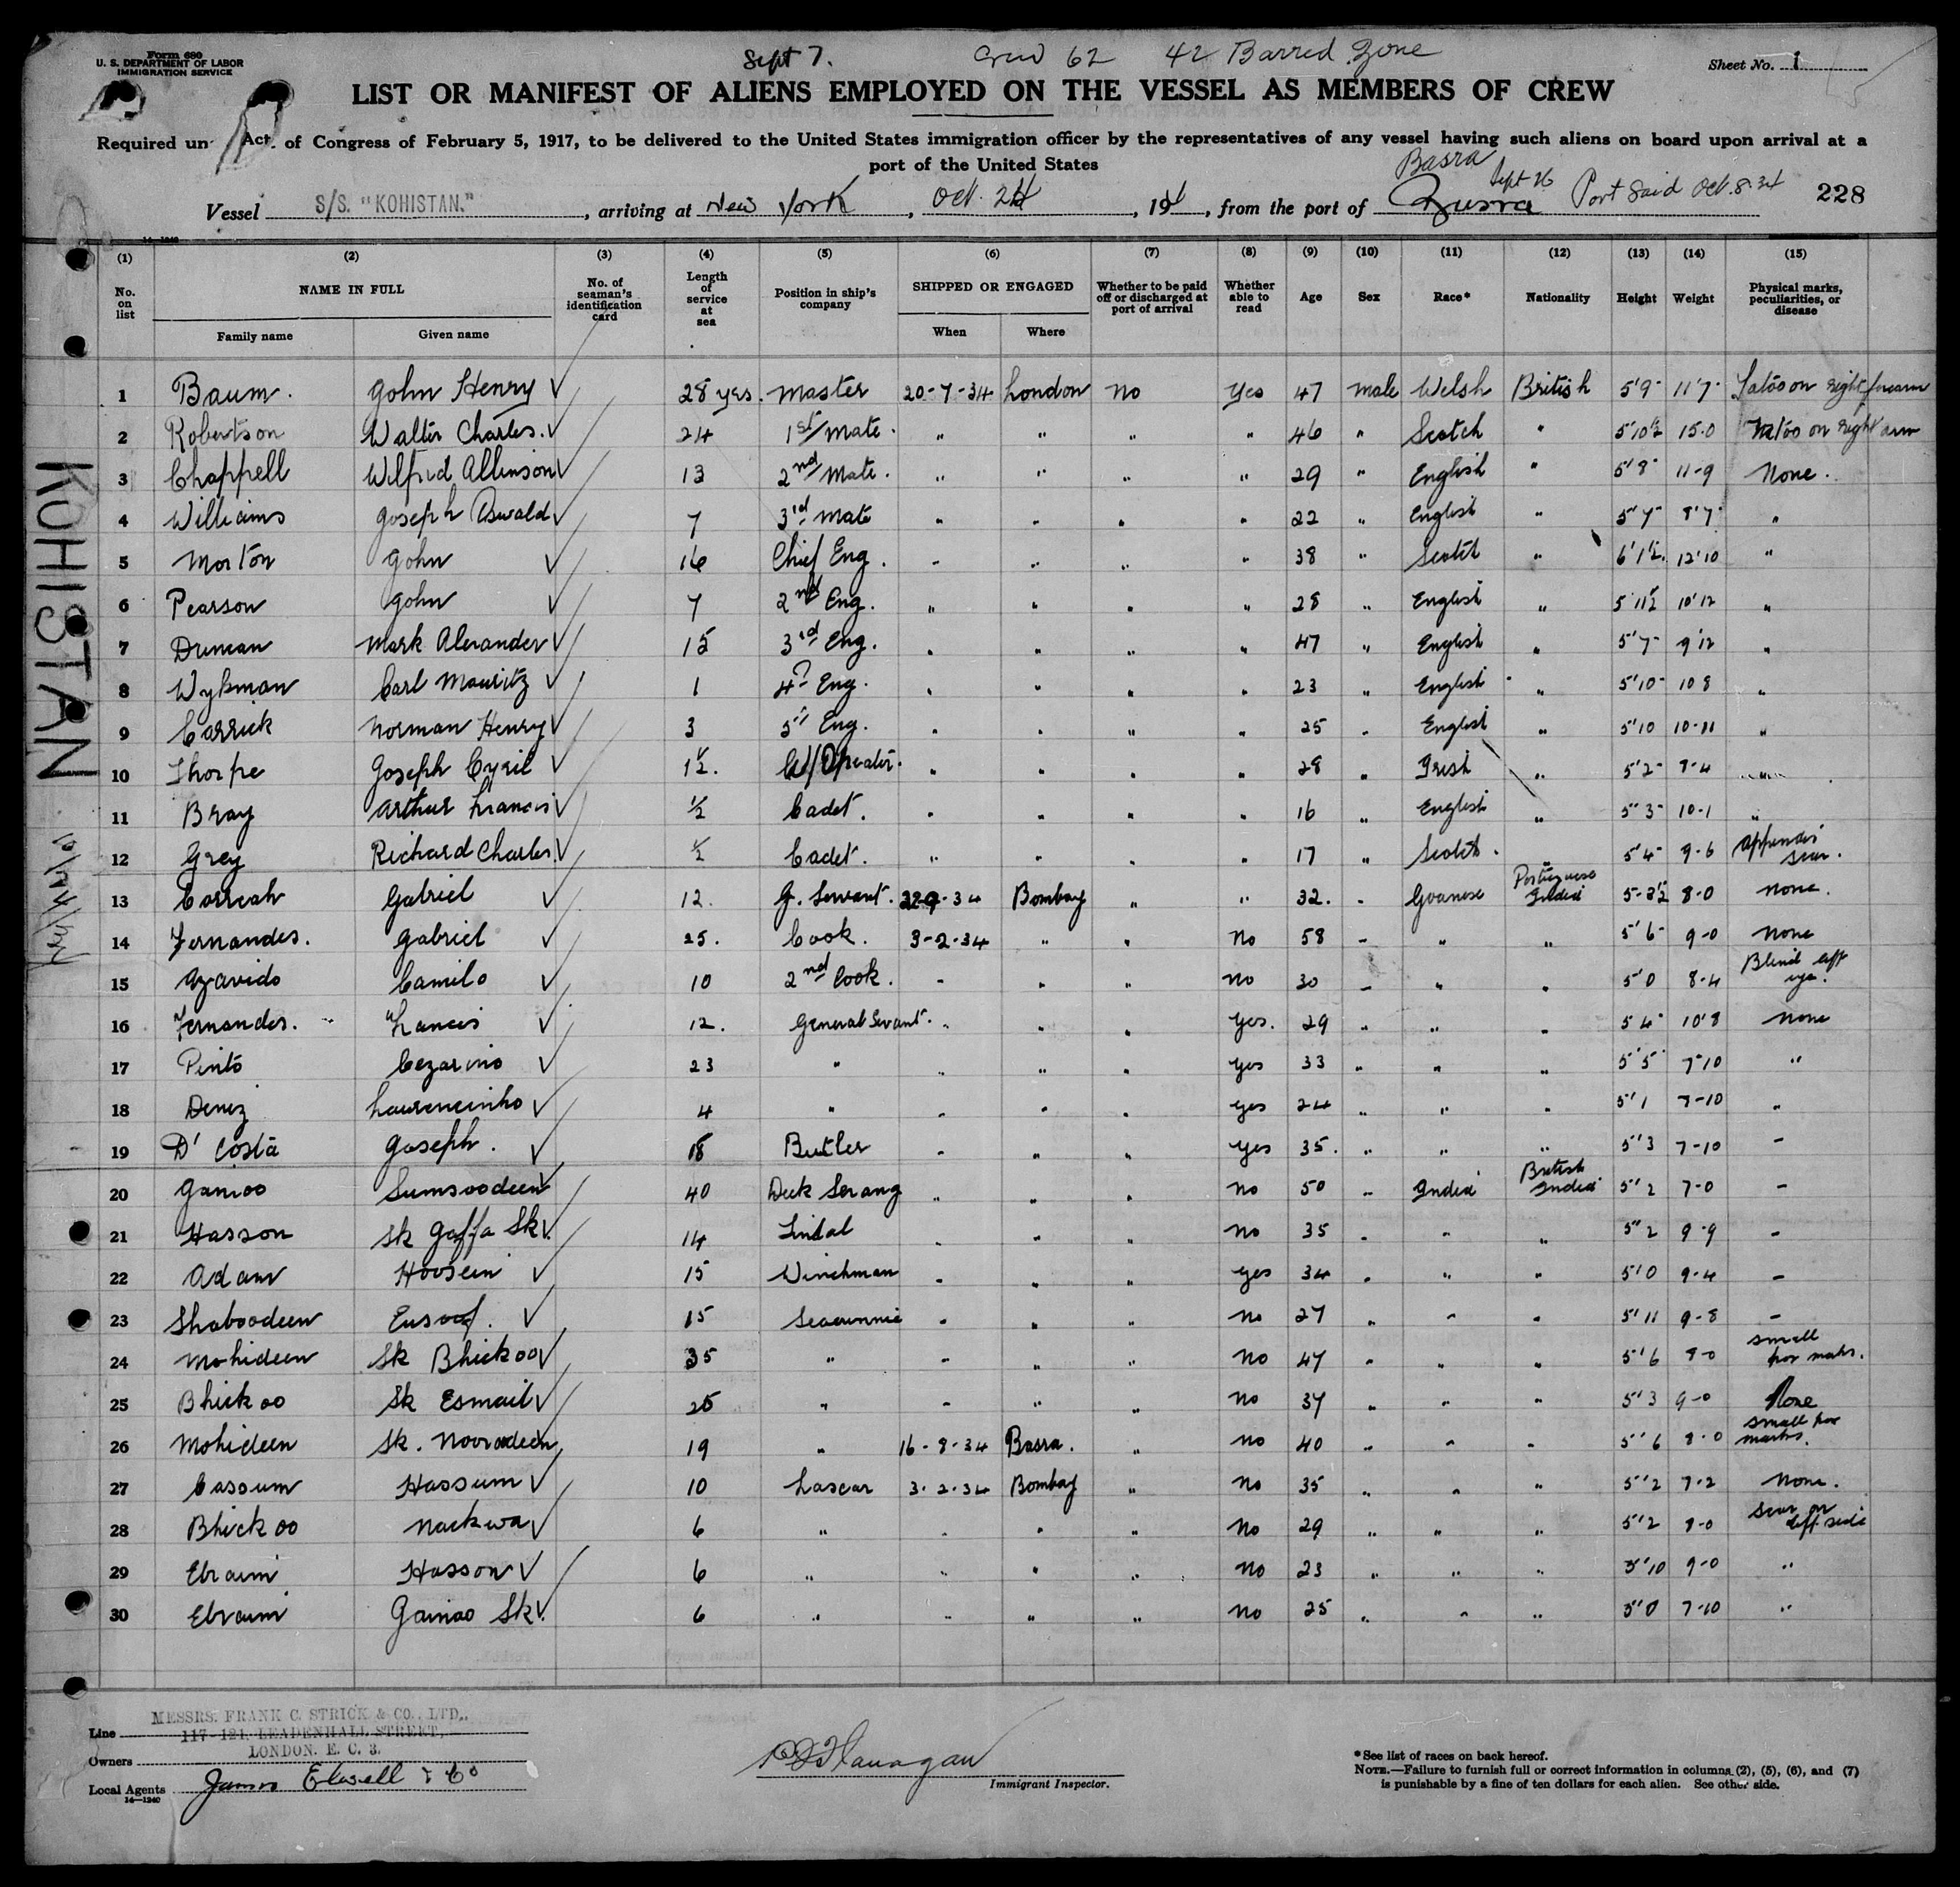 Form 680
U. S. DEPARTMENT OF LABOR
IMMIGRATION SERVICE
Sept 7. Crew 62 42 Barred Zone
Sheet No. 1
LIST OR MANIFEST OF ALIENS EMPLOYED ON THE VESSEL AS MEMBERS OF CREW
Required un Act of Congress of February 5, 1917, to be delivered to the United States immigration officer by the representatives of any vessel having such aliens on board upon arrival at a
port of the United States
Basra Sept 26
Vessel S/S. "KOHISTAN." , arriving at New York , Oct. 24 , 19 , from the port of Busra Port Said Oct. 8. 34 228
14-1240
(1) (2) (3) (4) (5) (6) (7) (8) (9) (10) (11) (12) (13) (14) (15)
No. on list NAME IN FULL Family name Given name No. of seaman's identification card Length of service at sea Position in ship's company SHIPPED OR ENGAGED When Where Whether to be paid off or discharged at port of arrival Whether able to read Age Sex Race* Nationality Height Weight Physical marks, peculiarities, or disease
1 Baum. John Henry ✓ 28 yrs. Master 20-7-34 London No Yes 47 male Welsh British 5'9" 11'7" Tatoo on right forearm
2 Robertson Walter Charles. ✓ 24 1st Mate. " " " " 46 " Scotch " 5'10½ 15.0 Tatoo on right arm
3 Chappell Wilfrid Allinson ✓ 13 2nd Mate. " " " " 29 " English " 5'8" 11-9 None.
4 Williams Joseph Oswald ✓ 7 3rd Mate " " " " 22 " English " 5'7" 8'7" "
5 Morton John ✓ 16 Chief Eng. " " " " 38 " Scotch " 6'1½. 12'10 "
6 Pearson John ✓ 7 2nd Eng. " " " " 28 " English " 5'11½ 10'12 "
7 Duncan Mark Alexander ✓ 15 3rd Eng. " " " " 47 " English " 5'7" 9'12 "
8 Wykman Carl Mauritz ✓ 1 4th Eng. " " " " 23 " English " 5'10" 10 8 "
9 Carrick Norman Henry ✓ 3 5th Eng. " " " " 25 " English " 5'10 10-11 "
10 Thorpe Joseph Cyril ✓ 1½. W/Operator. " " " " 28 " Irish " 5'2" 8-4 "
11 Bray Arthur Francis ✓ ½ Cadet. " " " " 16 " English " 5'3" 10-1 "
12 Grey Richard Charles. ✓ ½ Cadet. " " " " 17 " Scotch. " 5'4" 9-6 Appendix scar.
13 Correah Gabriel ✓ 12. G. Servant. 22-9-34 Bombay " " 32. " Goanese Portuguese India 5-3½ 8-0 None.
14 Fernandes. Gabriel ✓ 25. Cook. 3-2-34 " " No 58 " " " 5'6" 9-0 None
15 Azavido Camilo ✓ 10 2nd Cook. " " " No 30 " " " 5'0 8-4 Blind left eye.
16 Fernandes. Francis ✓ 12. General Servant. " " " Yes. 29 " " " 5'4" 10'8 None
17 Pinto Cezarino ✓ 23 " " " " Yes 33 " " " 5'5" 7-10 "
18 Deniz Laurencinho ✓ 4 " " " " Yes 24 " " " 5'1 7-10 "
19 D'Costa Joseph. ✓ 18 Butler " " " Yes 35. " " " 5'3 7-10 "
20 Ganioo Sumsoodeen ✓ 40 Deck Serang " " " No 50 " India British India 5'2 7-0 -
21 Hasson Sk Gaffa Sk ✓ 14 Tindal " " " No 35 " " " 5'2 9-9 -
22 Adam Hoosein ✓ 15 Winchman " " " Yes 34 " " " 5'0 9-4 -
23 Shaboodeen Eusoof. ✓ 15 Seacunnie " " " No 27 " " " 5'11 9-8 -
24 Mohideen Sk Bhickoo ✓ 35 " " " " No 47 " " " 5'6 8-0 small pox marks.
25 Bhickoo Sk Esmail ✓ 25 " " " " No 37 " " " 5'3 9-0 None
26 Mohideen Sk. Nooroodeen 19 " 16-8-34 Basra. " No 40 " " " 5'6 8-0 small pox marks.
27 Cassum Hassum ✓ 10 Lascar 3.2.34 Bombay " No 35 " " " 5'2 7-2 None.
28 Bhickoo Nackwa ✓ 6 " " " " No 29 " " " 5'2 8-0 Scar on left side
29 Ebraim Hasson ✓ 6 " " " " No 23 " " " 5'10 9-0 "
30 Ebraim Gainoo Sk ✓ 6 " " " " No 25 " " " 5'0 7-10 "
KOHISTAN
Line MESSRS. FRANK C. STRICK & CO., LTD.,
117-121, LEADENHALL STREET,
Owners LONDON. E. C. 3.
Local Agents James Elwell & Co
14-1240
Flanagan
Immigrant Inspector.
*See list of races on back hereof.
NOTE.—Failure to furnish full or correct information in columns (2), (5), (6), and (7)
is punishable by a fine of ten dollars for each alien. See other side.